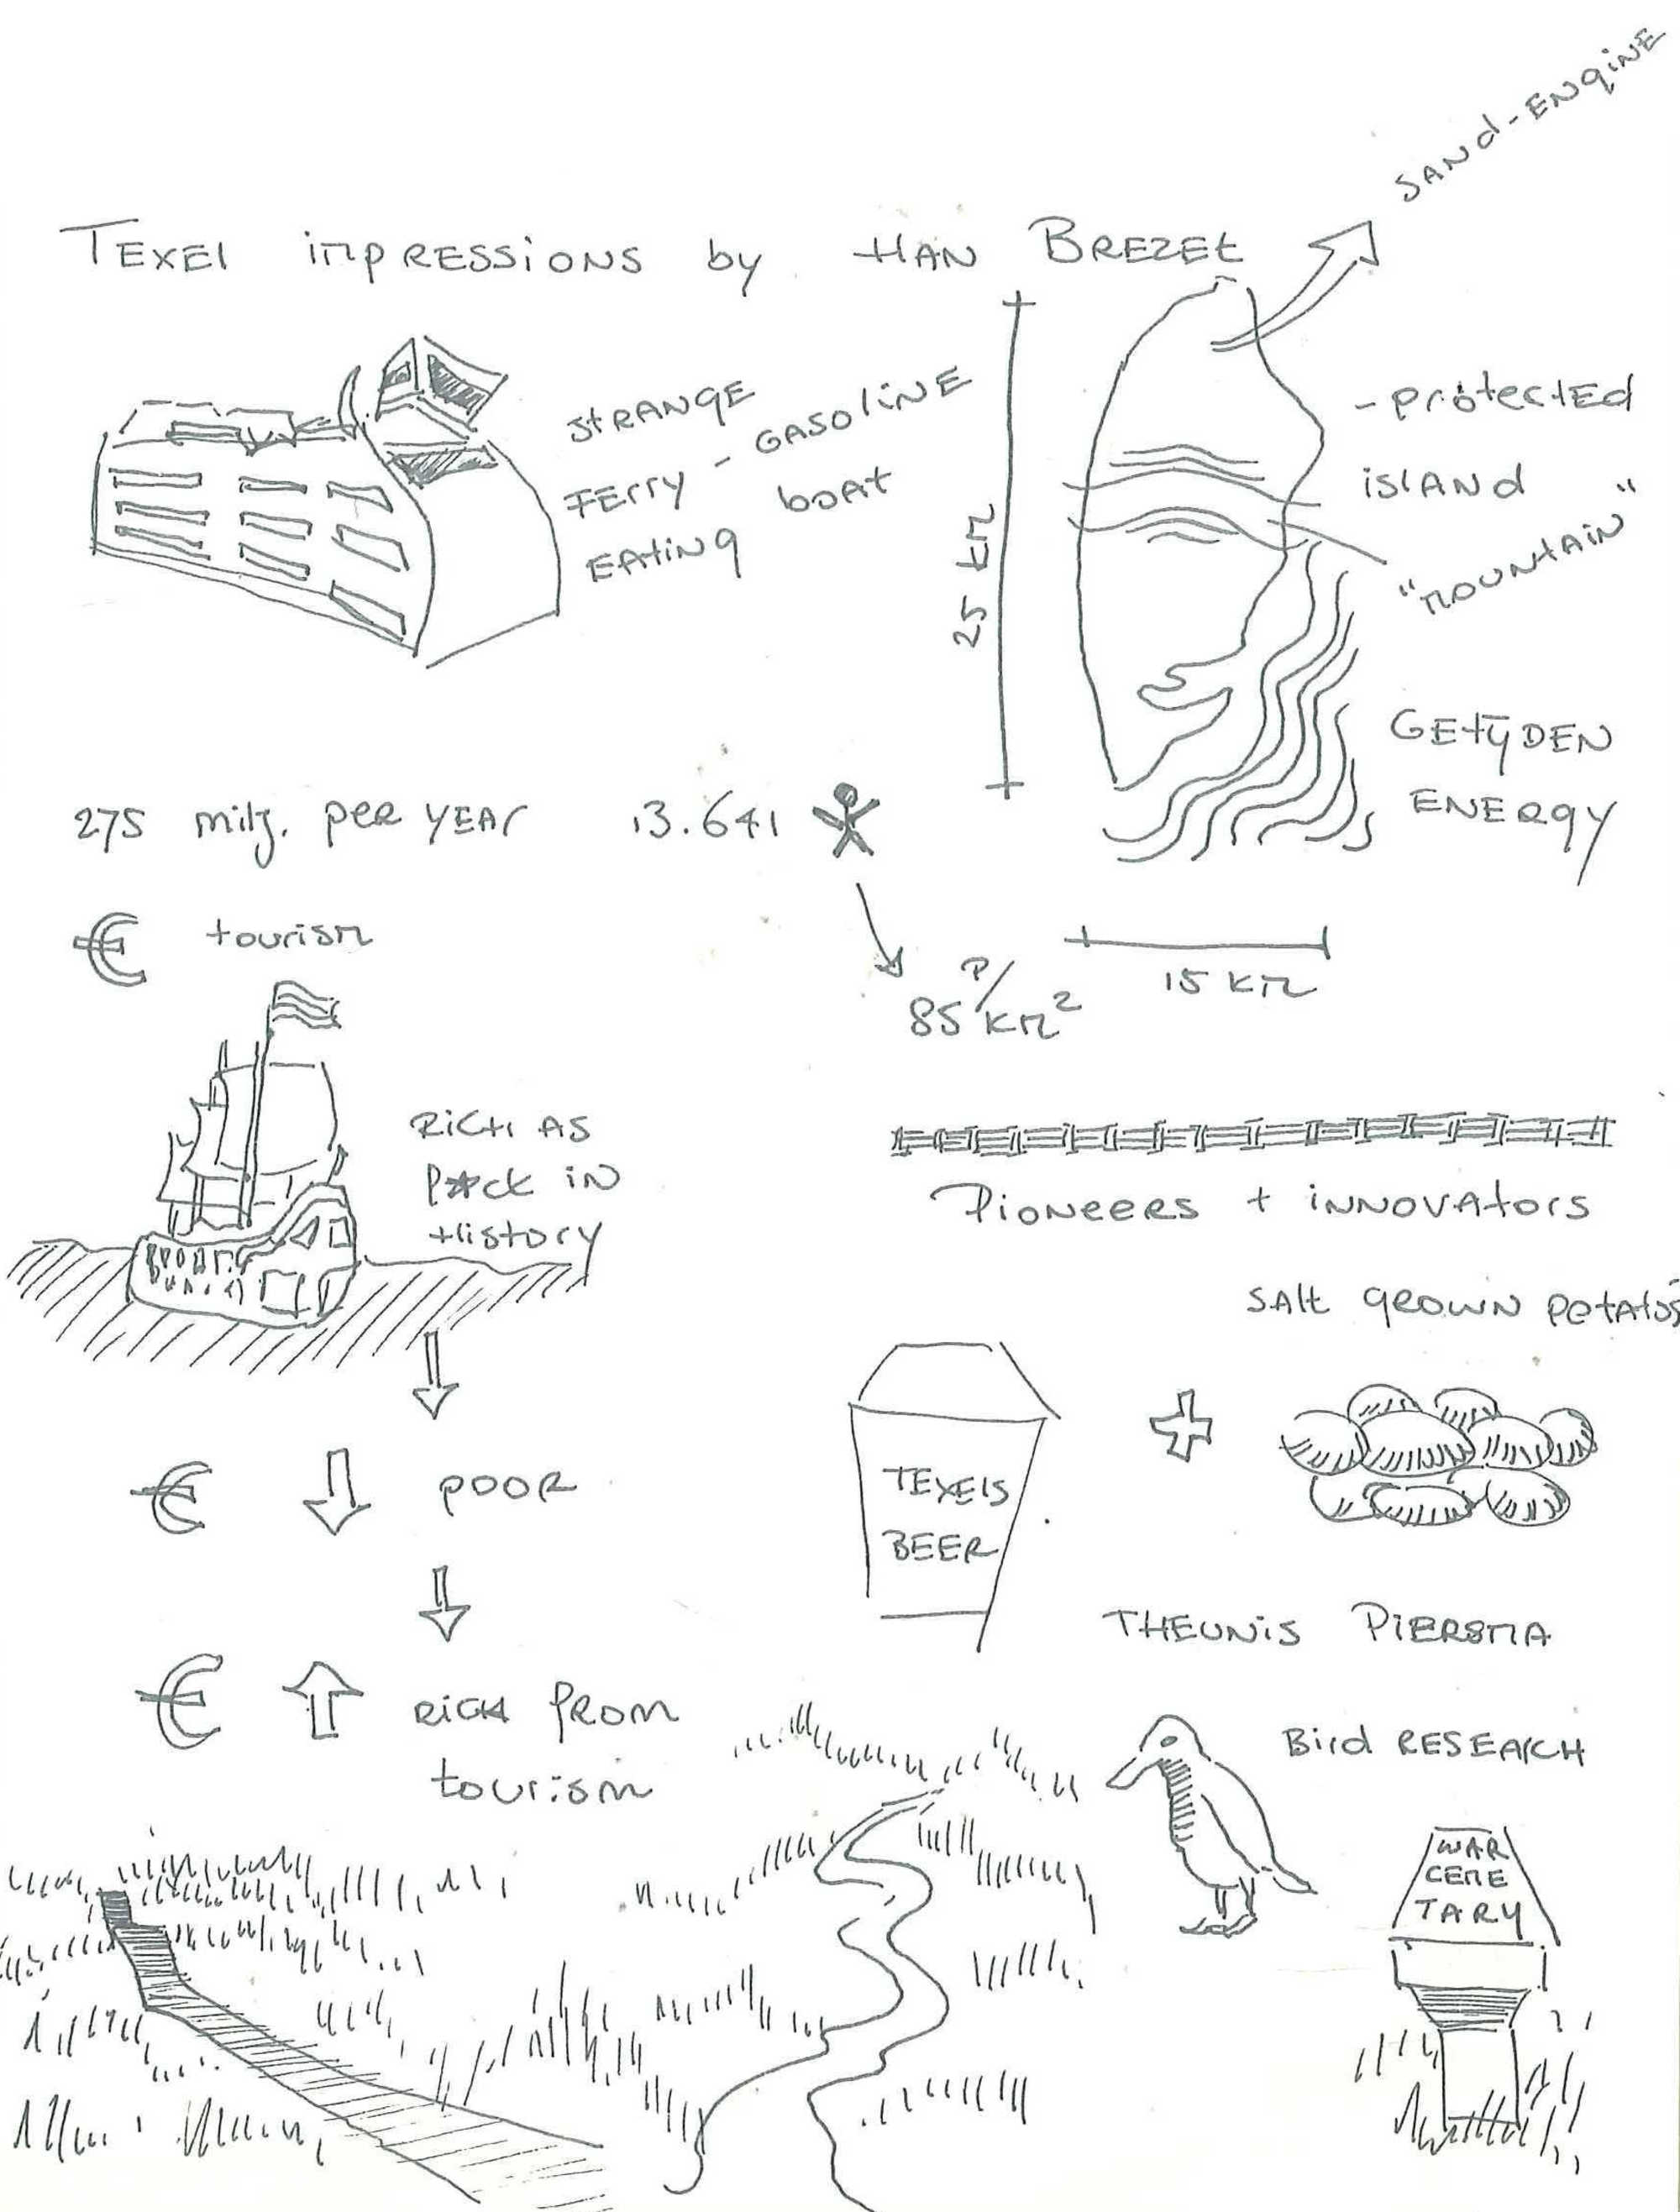 SAND-ENGINE
TEXEL IMPRESSIONS by HAN BREZET
STRANGE
FERRY - GASOLINE
EATING boat
25 km
- PROTECTED
ISLAND
"MOUNTAIN"
GETIJDEN
ENERGY
275 milj. per YEAR
13.641
€ tourism
85 P/km²
15 km
RICH AS
P*ck IN
HISTORY
PIONEERS + INNOVATORS
SALT GROWN PETATOS
€ POOR
TEXELS
BEER
THEUNIS PIERSMA
€ RICH from
tourism
Bird RESEARCH
WAR
CEME
TARY